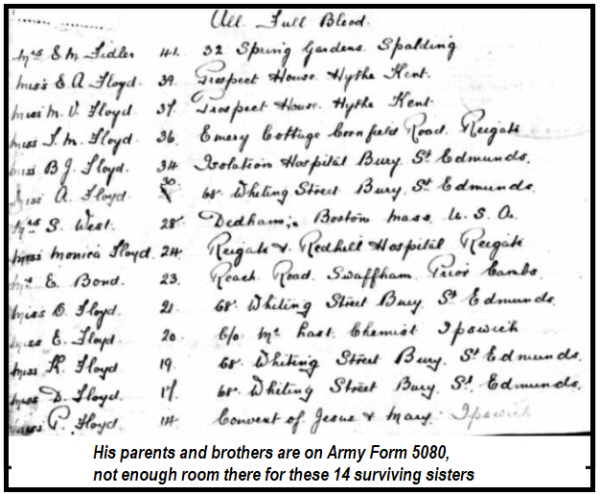 All Full Blood.
Mrs E M Fidler 41. 32 Spring Gardens Spalding
Miss E. A Floyd. 39. Prospect House Hythe Kent.
Miss M. V. Floyd. 37. Prospect House. Hythe Kent.
Miss I. M. Floyd. 36. Emery Cottage Cornfield Road. Reigate
Miss B J. Floyd. 34 Isolation Hospital Bury St Edmunds.
Miss A. Floyd. 30. 68 Whiting Street Bury St Edmunds.
Mrs S. West. 28. Dedham, Boston Mass U. S. A.
Miss Monica Floyd. 24. Reigate & Redhill Hospital Reigate
E Bond. 23. Roach Road. Swaffham Prior Cambs.
Miss O. Floyd. 21. 68. Whiting Street Bury St Edmunds.
Miss E. Floyd. 20. C/o Mr Chemist Ipswich
Miss K. Floyd. 19. 68. Whiting Street Bury. St Edmunds.
Miss D. Floyd. 17. 68. Whiting Street Bury. St Edmunds.
Miss P. Floyd 14. Convent of Jesus & Mary. Ipswich
His parents and brothers are on Army Form 5080,
not enough room there for these 14 surviving sisters